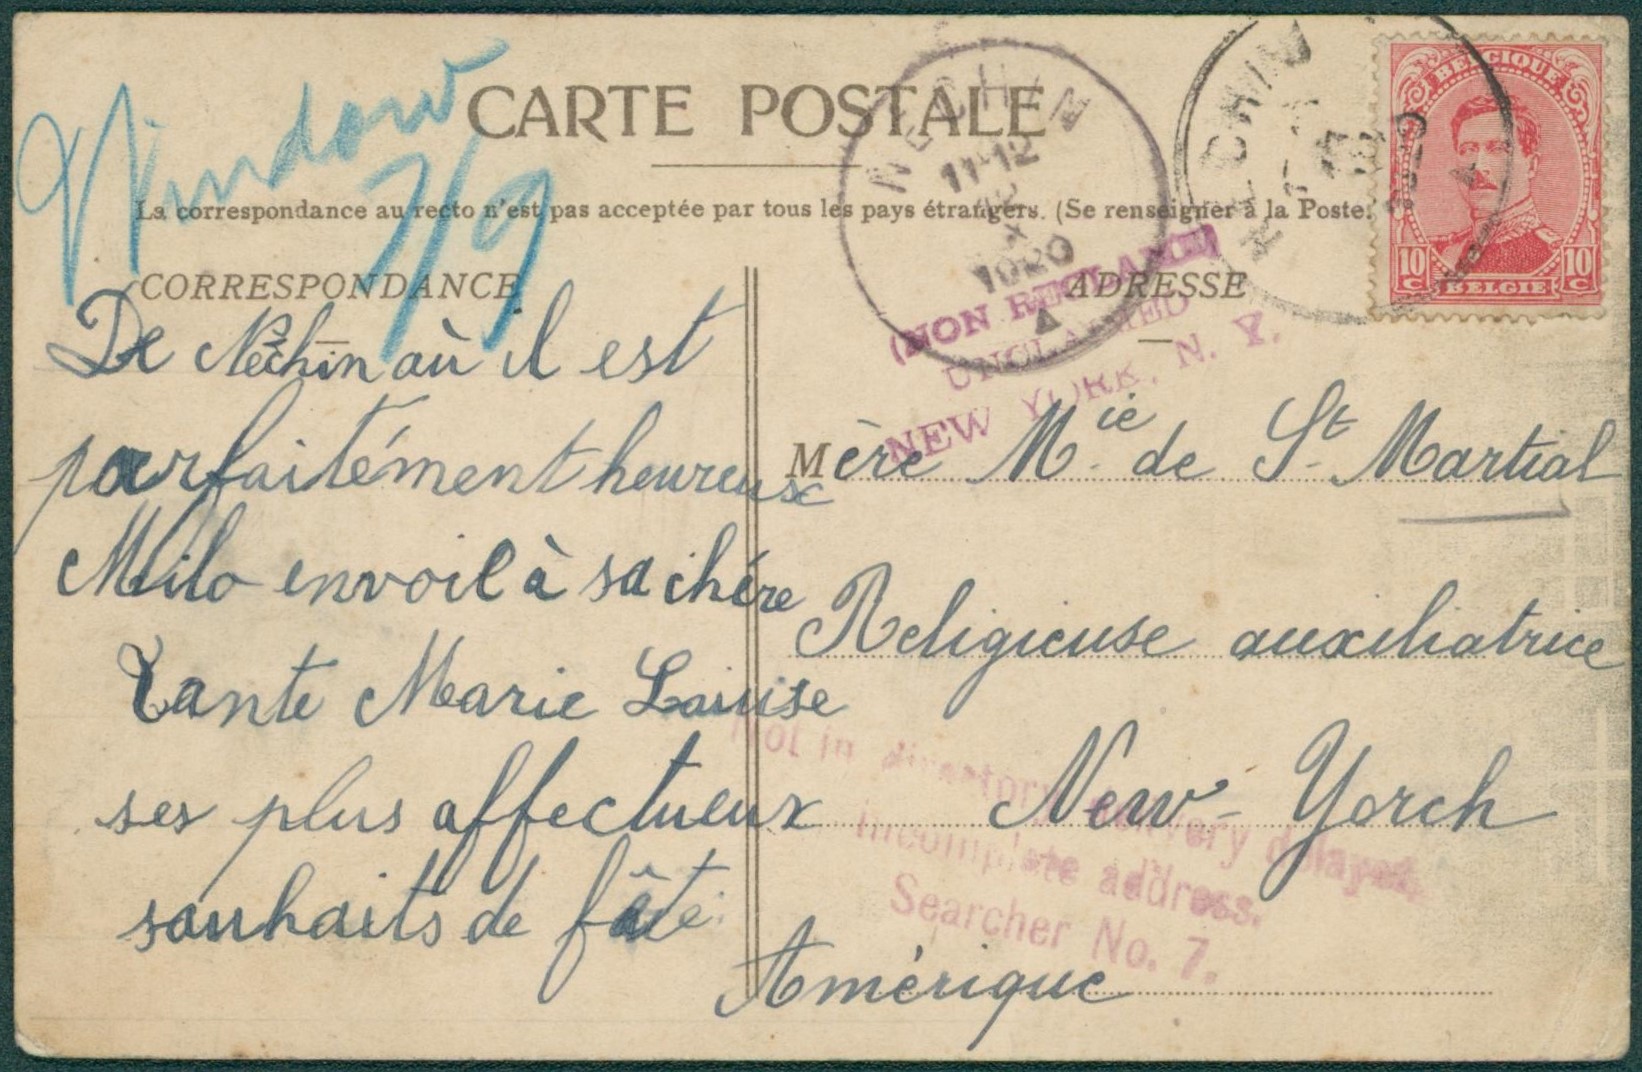 Window
7/9
CARTE POSTALE
La correspondance au recto n'est pas acceptée par tous les pays étrangers. (Se renseigner à la Poste.
NECHIN
11-12
12
X
1920
NECHIN
1920
BELGIQUE
10 C BELGIE 10 C
(NON RECLAMÉ)
UNCLAIMED
NEW YORK, N. Y.
CORRESPONDANCE
De Néchin où il est
parfaitément heureuse
Milo envoil à sa chére
Tante Marie Louise
ses plus affectueux
souhaits de fâte.
ADRESSE
Mère Mie de St Martial
Religieuse auxiliatrice
New-Yorch
Amérique
Not in directory delivery delayed,
incomplete address.
Searcher No. 7.